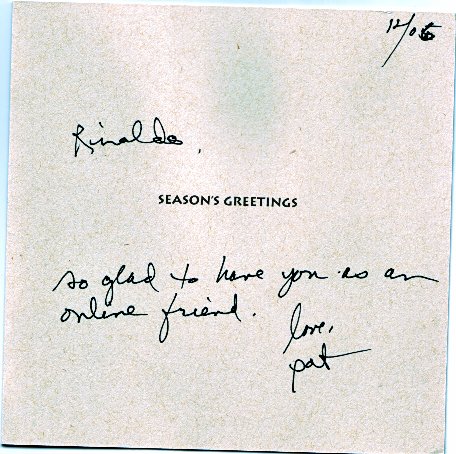 12/05
Rinaldo,
SEASON'S GREETINGS
so glad to have you as an
online friend.
love,
pat